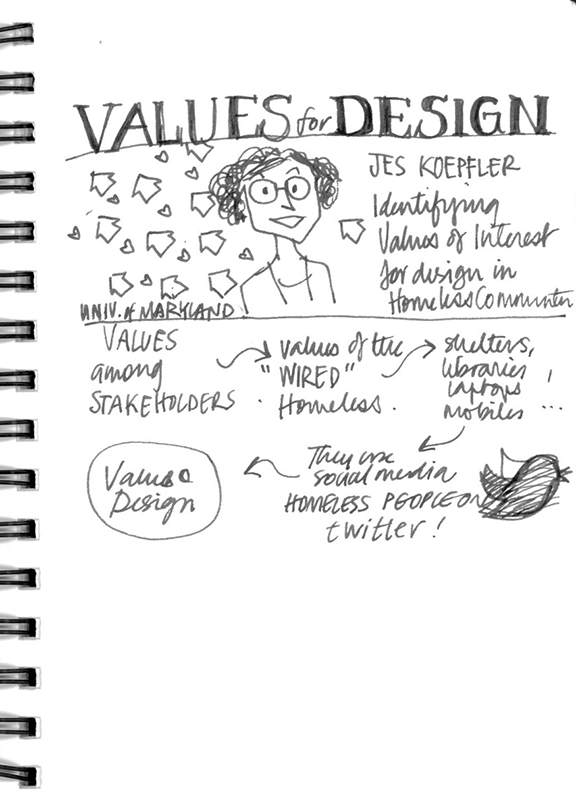 VALUES for DESIGN
JES KOEPFLER
Identifying
Values of Interest
for design in
Homeless Communities
UNIV. of MARYLAND
VALUES
among
STAKEHOLDERS
values of the
"WIRED"
Homeless.
shelters,
libraries,
laptops
mobiles ...
They use
social media
HOMELESS PEOPLE ON
twitter!
Values
Design